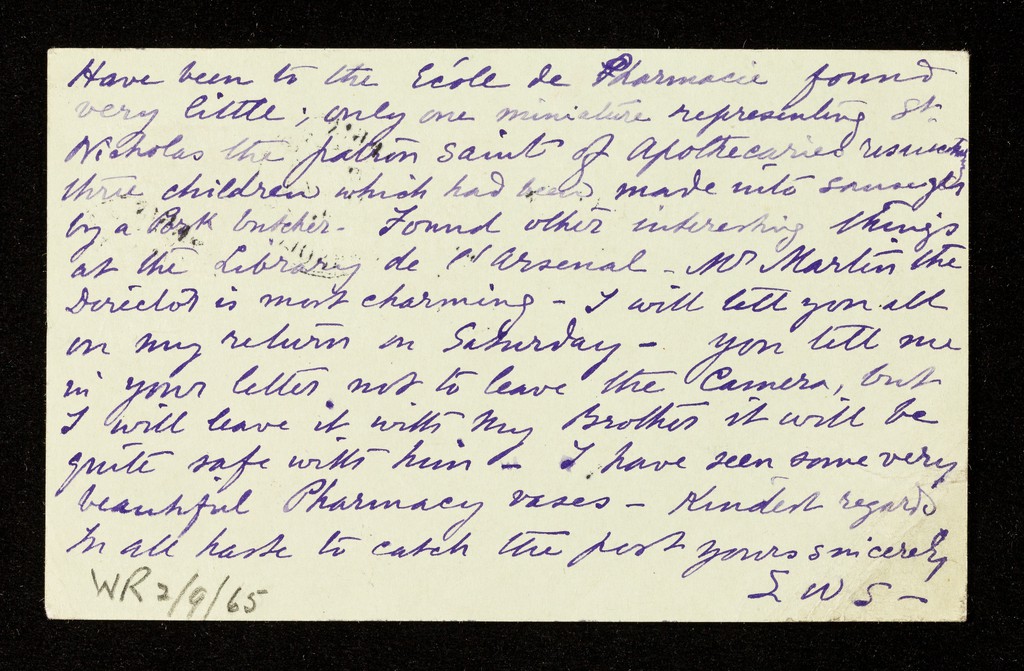 Have been to the École de Pharmacie found
very little; only one miniature representing St.
Nicholas the patron saint of Apothecaries
three children which had been made into sausages
by a Pork butcher - Found other interesting things
at the Library de l'Arsenal - Mr Martin the
Director is most charming - I will tell you all
on my return on Saturday - you tell me
in your letter not to leave the Camera, but
I will leave it with my Brother it will be
quite safe with him - I have seen some very
beautiful Pharmacy vases - Kindest regards
In all haste to catch the post yours sincerely
L W S -
WR2/9/65